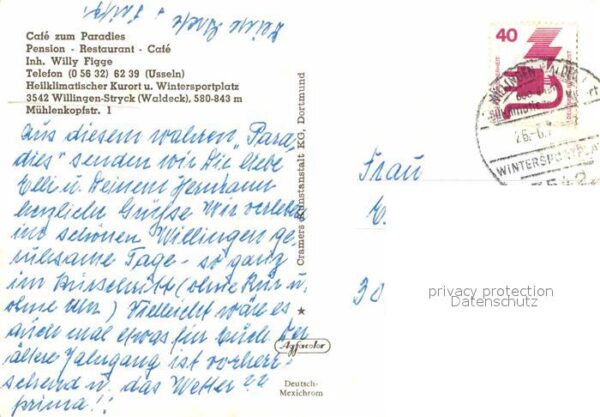 Café zum Paradies
Pension - Restaurant - Café
Inh. Willy Figge
Telefon (0 56 32) 62 39 (Usseln)
Heilklimatischer Kurort u. Wintersportplatz
3542 Willingen-Stryck (Waldeck), 580-843 m
Mühlenkopfstr. 1
Aus diesem wahren „Para
dies" senden wir Dir liebe
Elli u. Deinem Hermann
herzliche Grüße Wir verleben
im schönen Willingen ge
ruhsame Tage - so ganz
im Kurschritt (ohne Kur u.
ohne Uhr) Vielleicht wäre es
auch mal etwas für Euch Der
ältere Jahrgang ist vorherr-
schend u. das Wetter
prima!!
Cramers Kunstanstalt KG, Dortmund
Agfacolor
Deutsch-
Mexichrom
40
WINTERSPORTPLATZ
3542
Frau
E.
30
privacy protection
Datenschutz